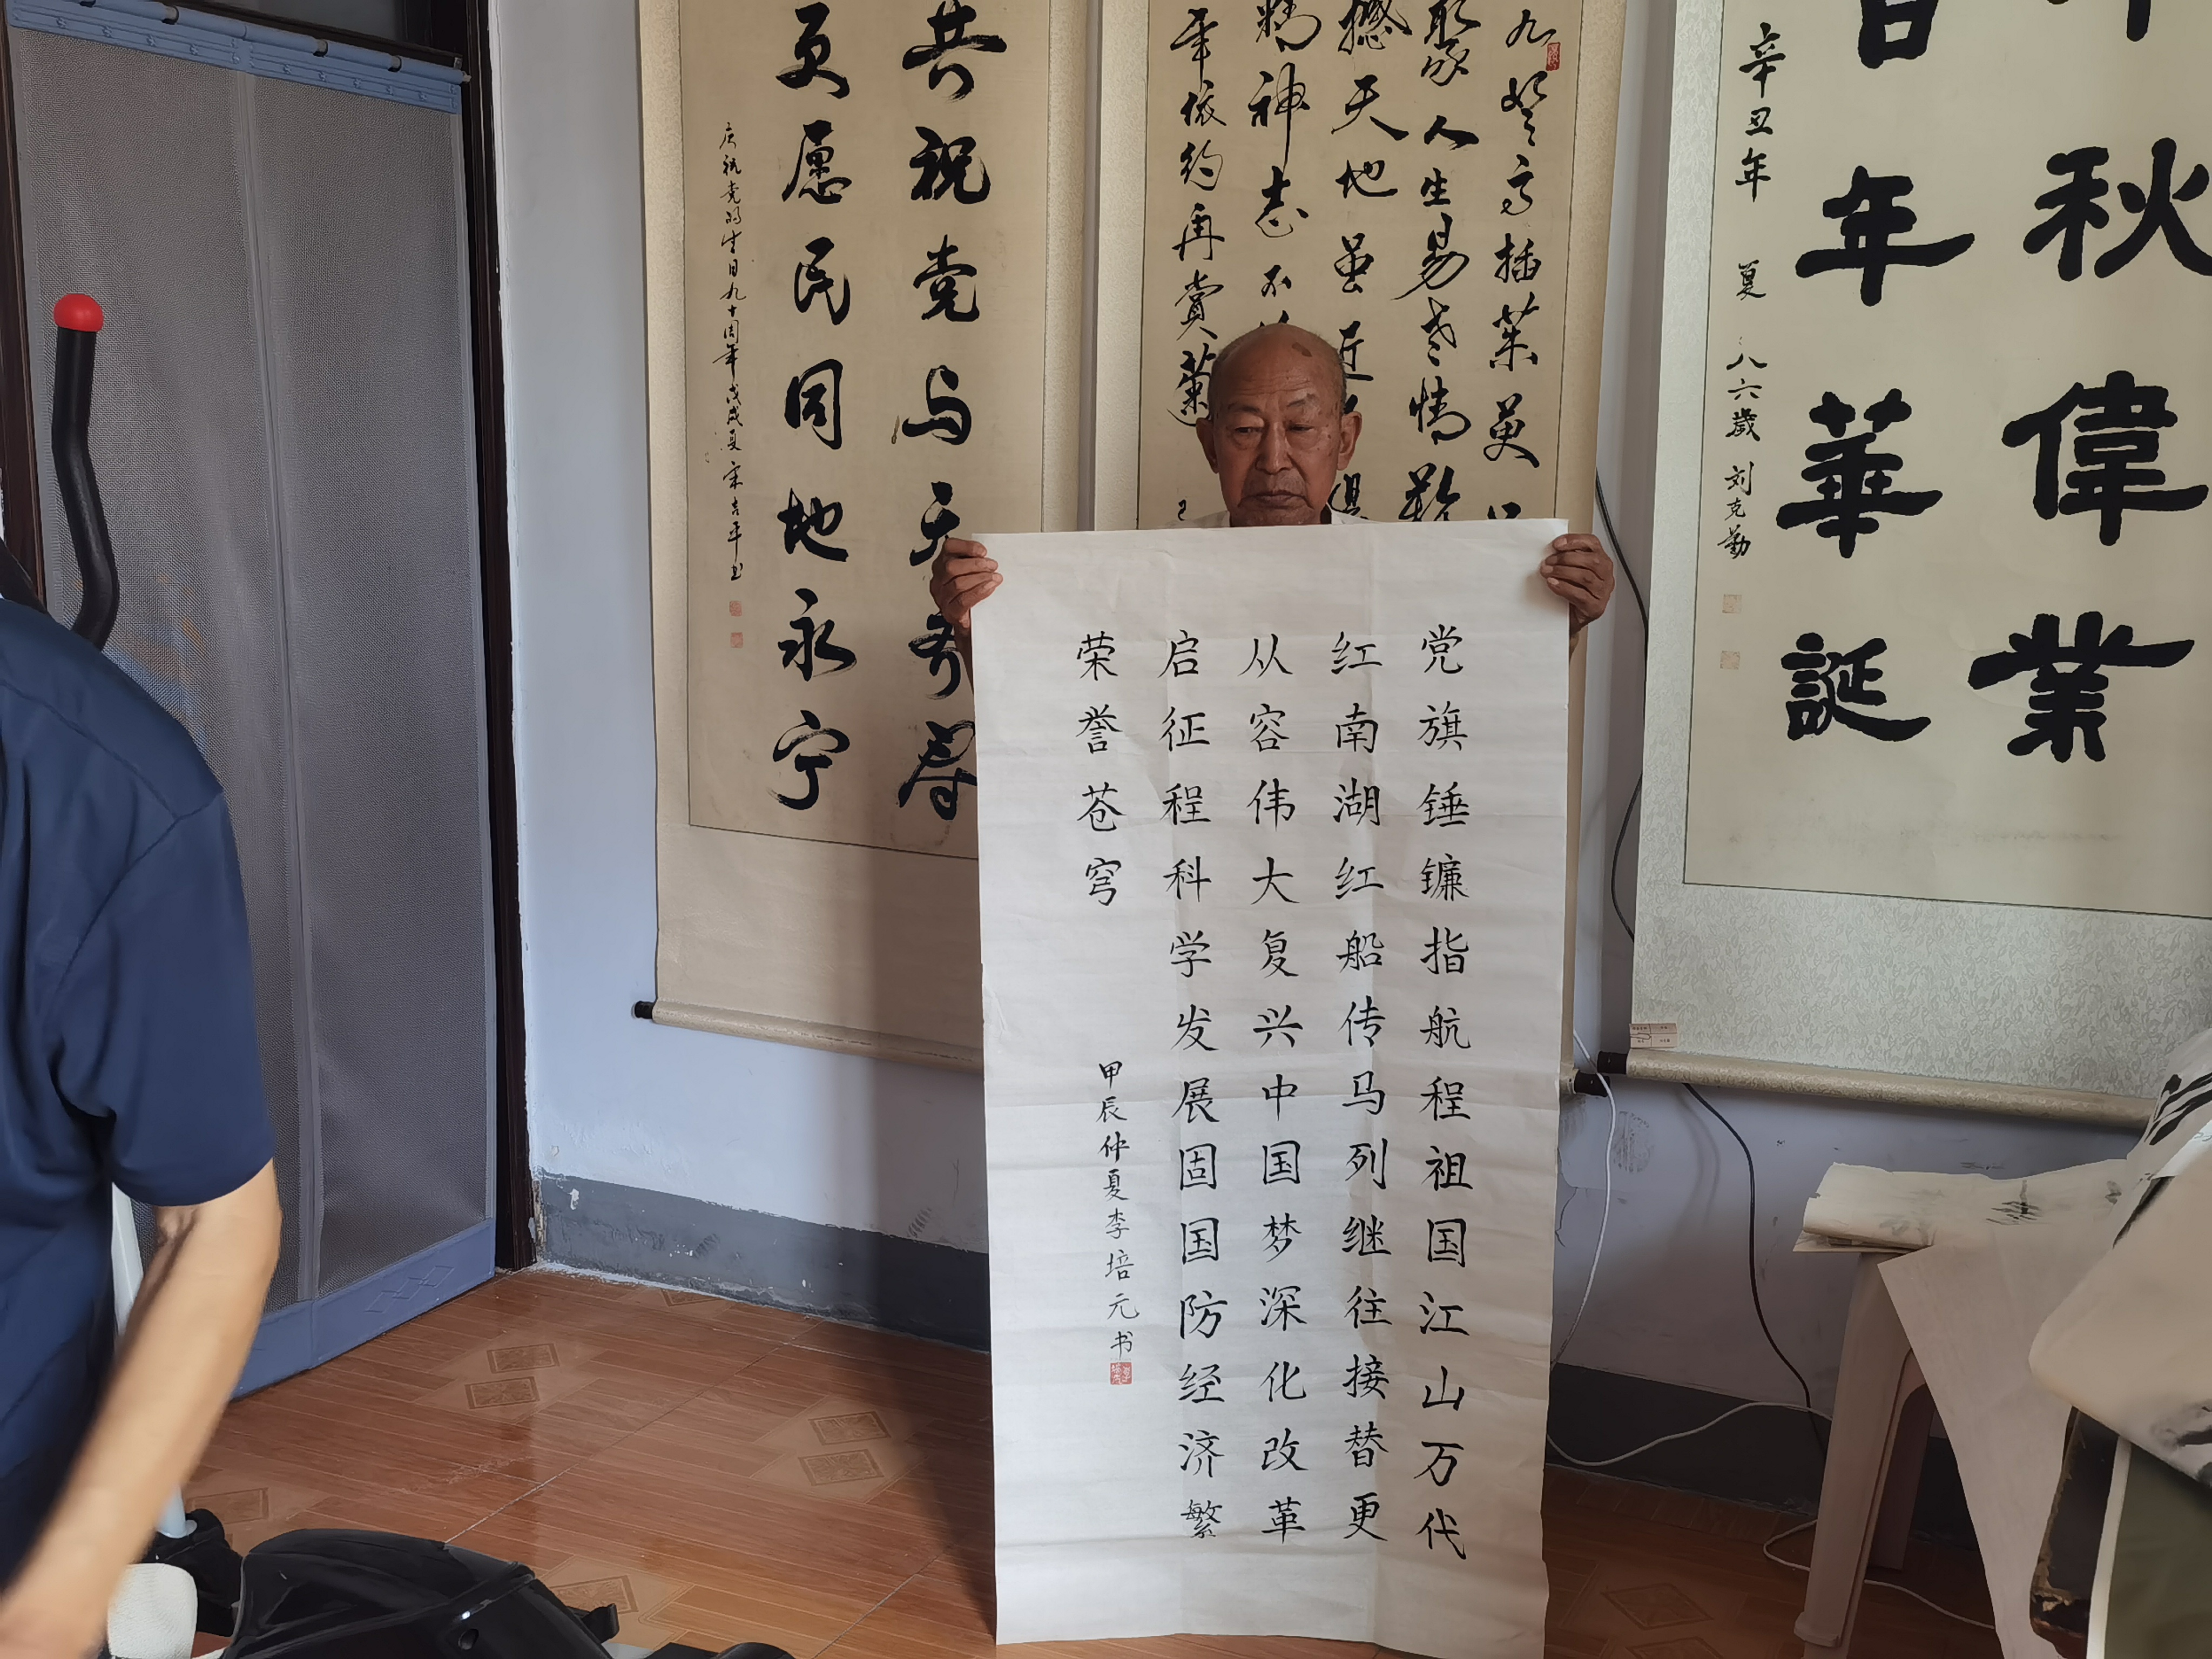 秋偉業
年華誕
辛丑年 夏 八六歲 刘克勤
九登高插茱萸
聚人生易老情难
撼天地虽近
精神志不
年依约再赏
共祝党与天齐寿
更愿民同地永宁
庆祝党的生日九十周年戊戌夏宋吉平书
党旗锤镰指航程祖国江山万代
红南湖红船传马列继往接替更
从容伟大复兴中国梦深化改革
启征程科学发展固国防经济繁
荣誉苍穹
甲辰仲夏李培元书